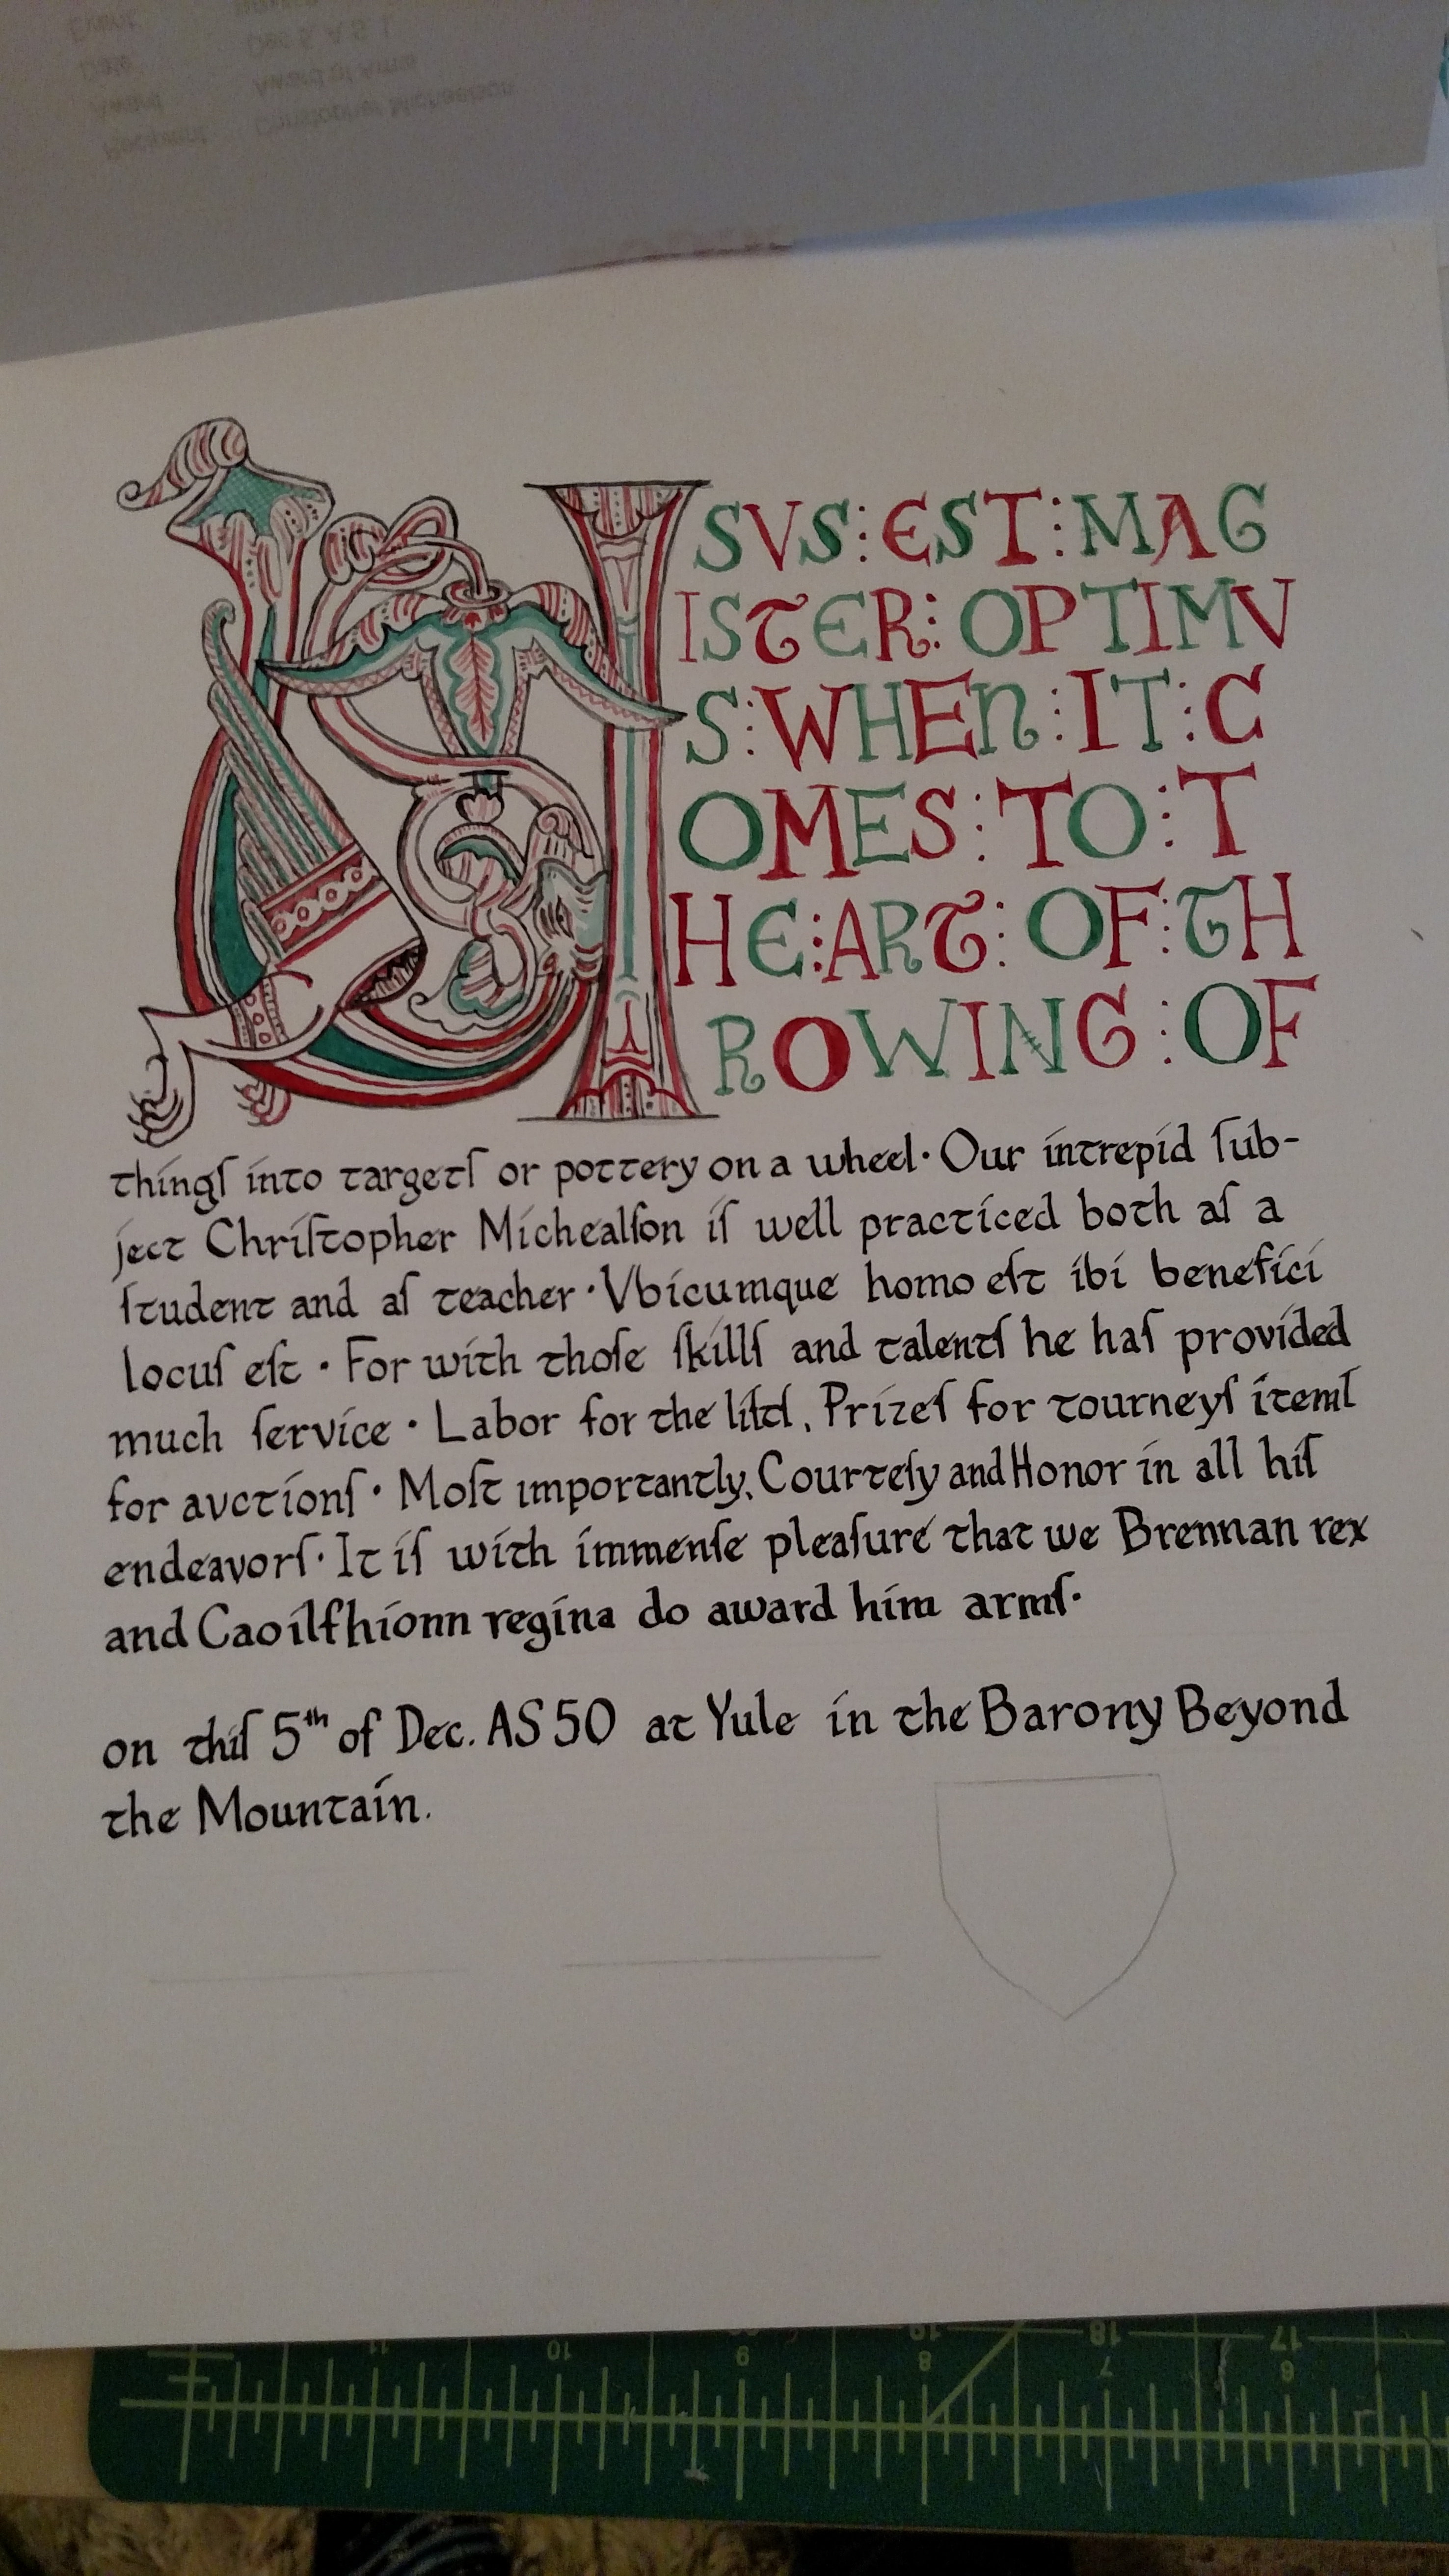 Event
Date Dec 5, A.S. L
Award Award of Arms
Recipient Christopher Michaelson
USVS:EST:MAG
ISTER:OPTIMV
S:WHEN:IT:C
OMES:TO:T
HE:ART:OF:TH
ROWING:OF
thingſ into targetſ or pottery on a wheel· Our intrepid ſub-
ject Chriſtopher Michealſon iſ well practiced both aſ a
ſtudent and aſ teacher·Vbicumque homo eſt ibi benefici
locuſ eſt · For with thoſe ſkillſ and talentſ he haſ provided
much ſervice · Labor for the liſtſ, Prizeſ for tourneyſ itemſ
for avctionſ · Moſt importantly, Courteſy and Honor in all hiſ
endeavorſ· It iſ with immenſe pleaſure that we Brennan rex
and Caoilfhionn regina do award him armſ·
on thiſ 5th of Dec. AS 50 at Yule in the Barony Beyond
the Mountain.
19 18 17
11 10 9 8 7 6